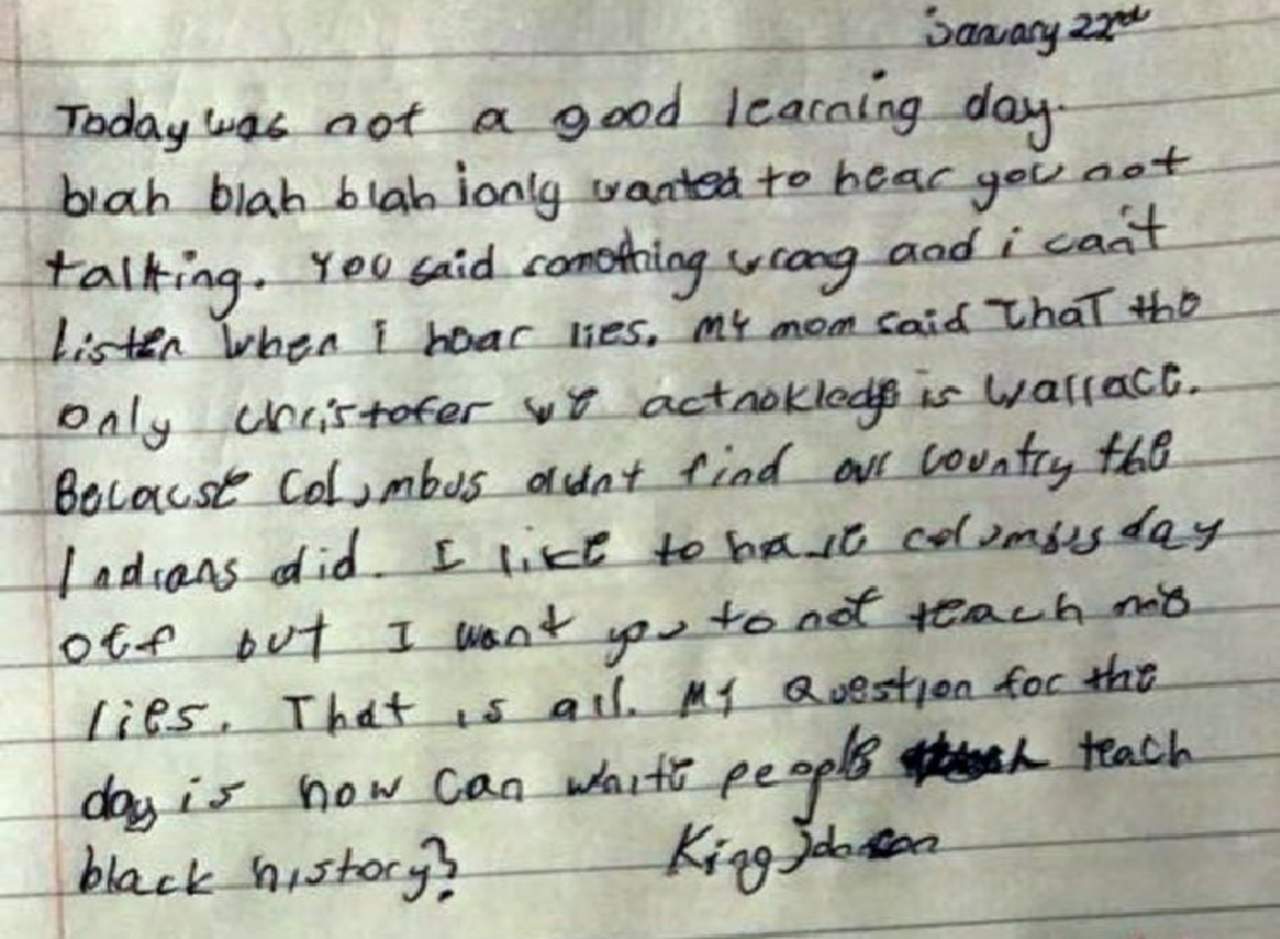 January 22nd
Today was not a good learning day.
blah blah blah i only wanted to hear you not
talking. You said somothing wrong and i can't
listen when i hoar lies. My mom said That the
only christofer we acknokledge is Wallace.
Because Columbus didnt find our country the
Indians did. I like to have columbus day
off but I want you to not teach me
lies. That is all. My Question for the
day is how can white people teach
black history? King Johnson